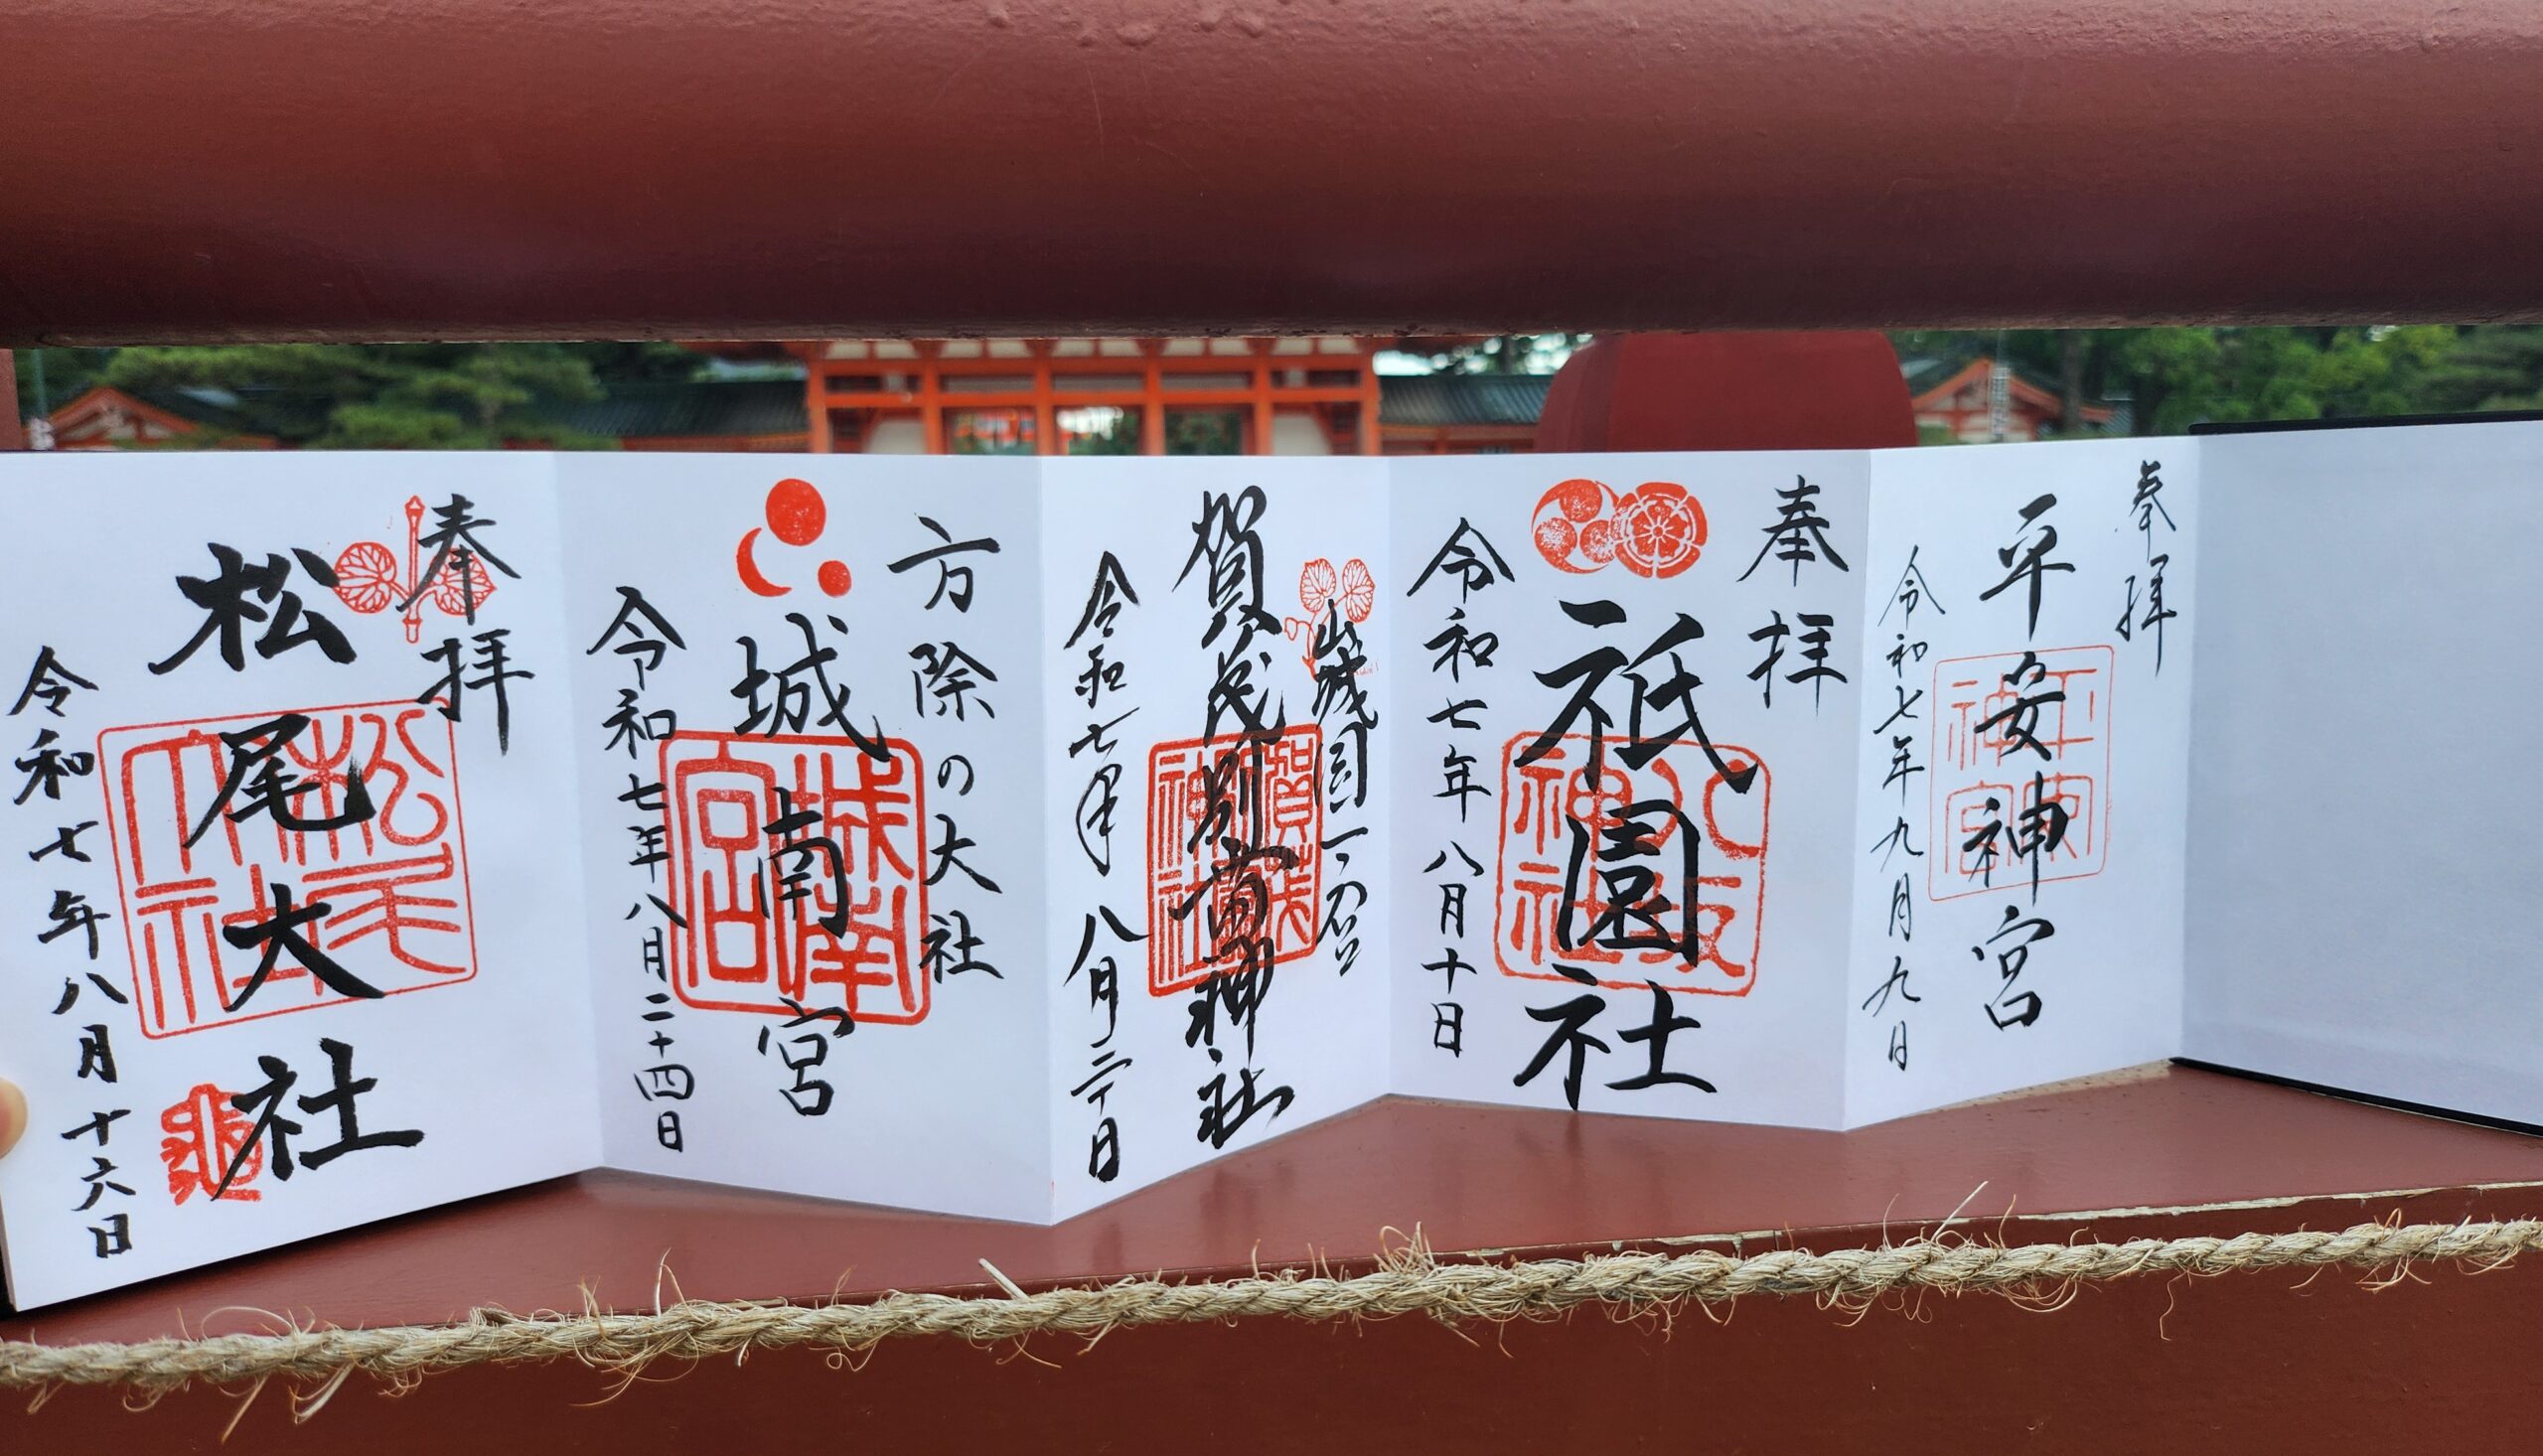 奉拝
平安神宮
平安神宮
令和七年九月九日
奉拝
祇園社
八坂神社
令和七年八月十日
山城国一ノ宮
賀茂別雷神社
令和七年八月二十日
方除の大社
城南宮
城南宮
令和七年八月二十四日
奉拝
松尾大社
松尾大社
令和七年八月十六日